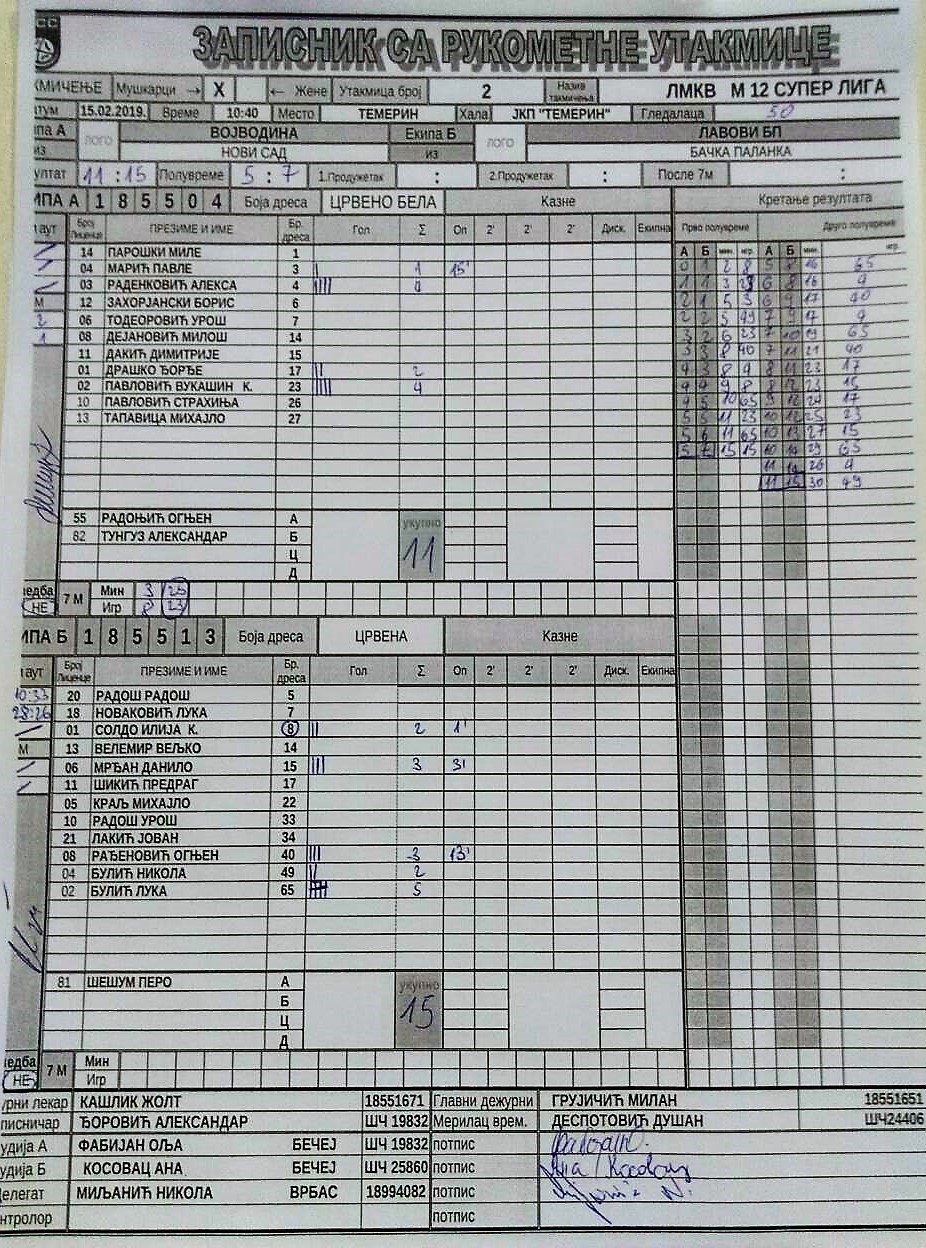 СС
ЗАПИСНИК СА РУКОМЕТНЕ УТАКМИЦЕ
КМИЧЕЊЕ Мушкарци → X ← Жене Утакмица број 2 Назив такмичења ЛМКВ М 12 СУПЕР ЛИГА
атум 15.02.2019. Време 10:40 Место ТЕМЕРИН Хала ЈКП "ТЕМЕРИН" Гледалаца 50
ипа А лого ВОЈВОДИНА Екипа Б лого ЛАВОВИ БП
из НОВИ САД из БАЧКА ПАЛАНКА
ултат 11 : 15 Полувреме 5 : 7 1.Продужетак : 2.Продужетак : После 7м :
ИПА А 1 8 5 5 0 4 Боја дреса ЦРВЕНО БЕЛА Казне Кретање резултата
аут Број Лиценце ПРЕЗИМЕ И ИМЕ Бр. дреса Гол Σ Оп 2' 2' 2' Диск. Екипна Прво полувреме Друго полувреме
А Б мин. игр. А Б мин. игр.
14 ПАРОШКИ МИЛЕ 1
04 МАРИЋ ПАВЛЕ 3 | 1 15' 0 1 2 8 5 8 16 65
03 РАДЕНКОВИЋ АЛЕКСА 4 |||| 1 1 3 6 8 16 4
М 12 ЗАХОРЈАНСКИ БОРИС 6 2 1 5 3 6 9 17 40
2 06 ТОДЕОРОВИЋ УРОШ 7 2 2 5 49 7 9 17 4
1 08 ДЕЈАНОВИЋ МИЛОШ 14 3 2 6 23 7 10 19 65
11 ДАКИЋ ДИМИТРИЈЕ 15 3 3 8 40 7 11 21 40
01 ДРАШКО ЂОРЂЕ 17 || 2 4 3 8 4 8 11 23 17
02 ПАВЛОВИЋ ВУКАШИН К. 23 |||| 4 4 4 9 8 8 12 23 15
10 ПАВЛОВИЋ СТРАХИЊА 26 4 5 10 65 9 12 24 17
13 ТАПАВИЦА МИХАЈЛО 27 5 5 11 23 10 12 25 23
5 6 11 65 10 13 27 15
5 7 15 15 10 14 29 65
11 14 26 4
11 15 30 49
55 РАДОЊИЋ ОГЊЕН А укупно
82 ТУНГУЗ АЛЕКСАНДАР Б 11
Ц
Д
једба НЕ 7 М Мин 3 25
Игр 8 23
ИПА Б 1 8 5 5 1 3 Боја дреса ЦРВЕНА Казне
аут Број Лиценце ПРЕЗИМЕ И ИМЕ Бр. дреса Гол Σ Оп 2' 2' 2' Диск. Екипна
10:33 20 РАДОШ РАДОШ 5
28:26 18 НОВАКОВИЋ ЛУКА 7
01 СОЛДО ИЛИЈА К. 8 2 1'
М 13 ВЕЛЕМИР ВЕЉКО 14
06 МРЂАН ДАНИЛО 15 ||| 3 3'
11 ШИКИЋ ПРЕДРАГ 17
05 КРАЉ МИХАЈЛО 22
10 РАДОШ УРОШ 33
21 ЛАКИЋ ЈОВАН 34
08 РАЂЕНОВИЋ ОГЊЕН 40 ||| 3 13'
04 БУЛИЋ НИКОЛА 49 || 2
02 БУЛИЋ ЛУКА 65 5
81 ШЕШУМ ПЕРО А укупно
Б 15
Ц
Д
једба НЕ 7 М Мин
Игр
рни лекар КАШЛИК ЖОЛТ 18551671 Главни дежурни ГРУЈИЧИЋ МИЛАН 18551651
писничар ЂОРОВИЋ АЛЕКСАНДАР ШЧ 19832 Мерилац врем. ДЕСПОТОВИЋ ДУШАН ШЧ24406
удија А ФАБИЈАН ОЉА БЕЧЕЈ ШЧ 19832 потпис
удија Б КОСОВАЦ АНА БЕЧЕЈ ШЧ 25860 потпис
елегат МИЉАНИЋ НИКОЛА ВРБАС 18994082 потпис
нтролор потпис